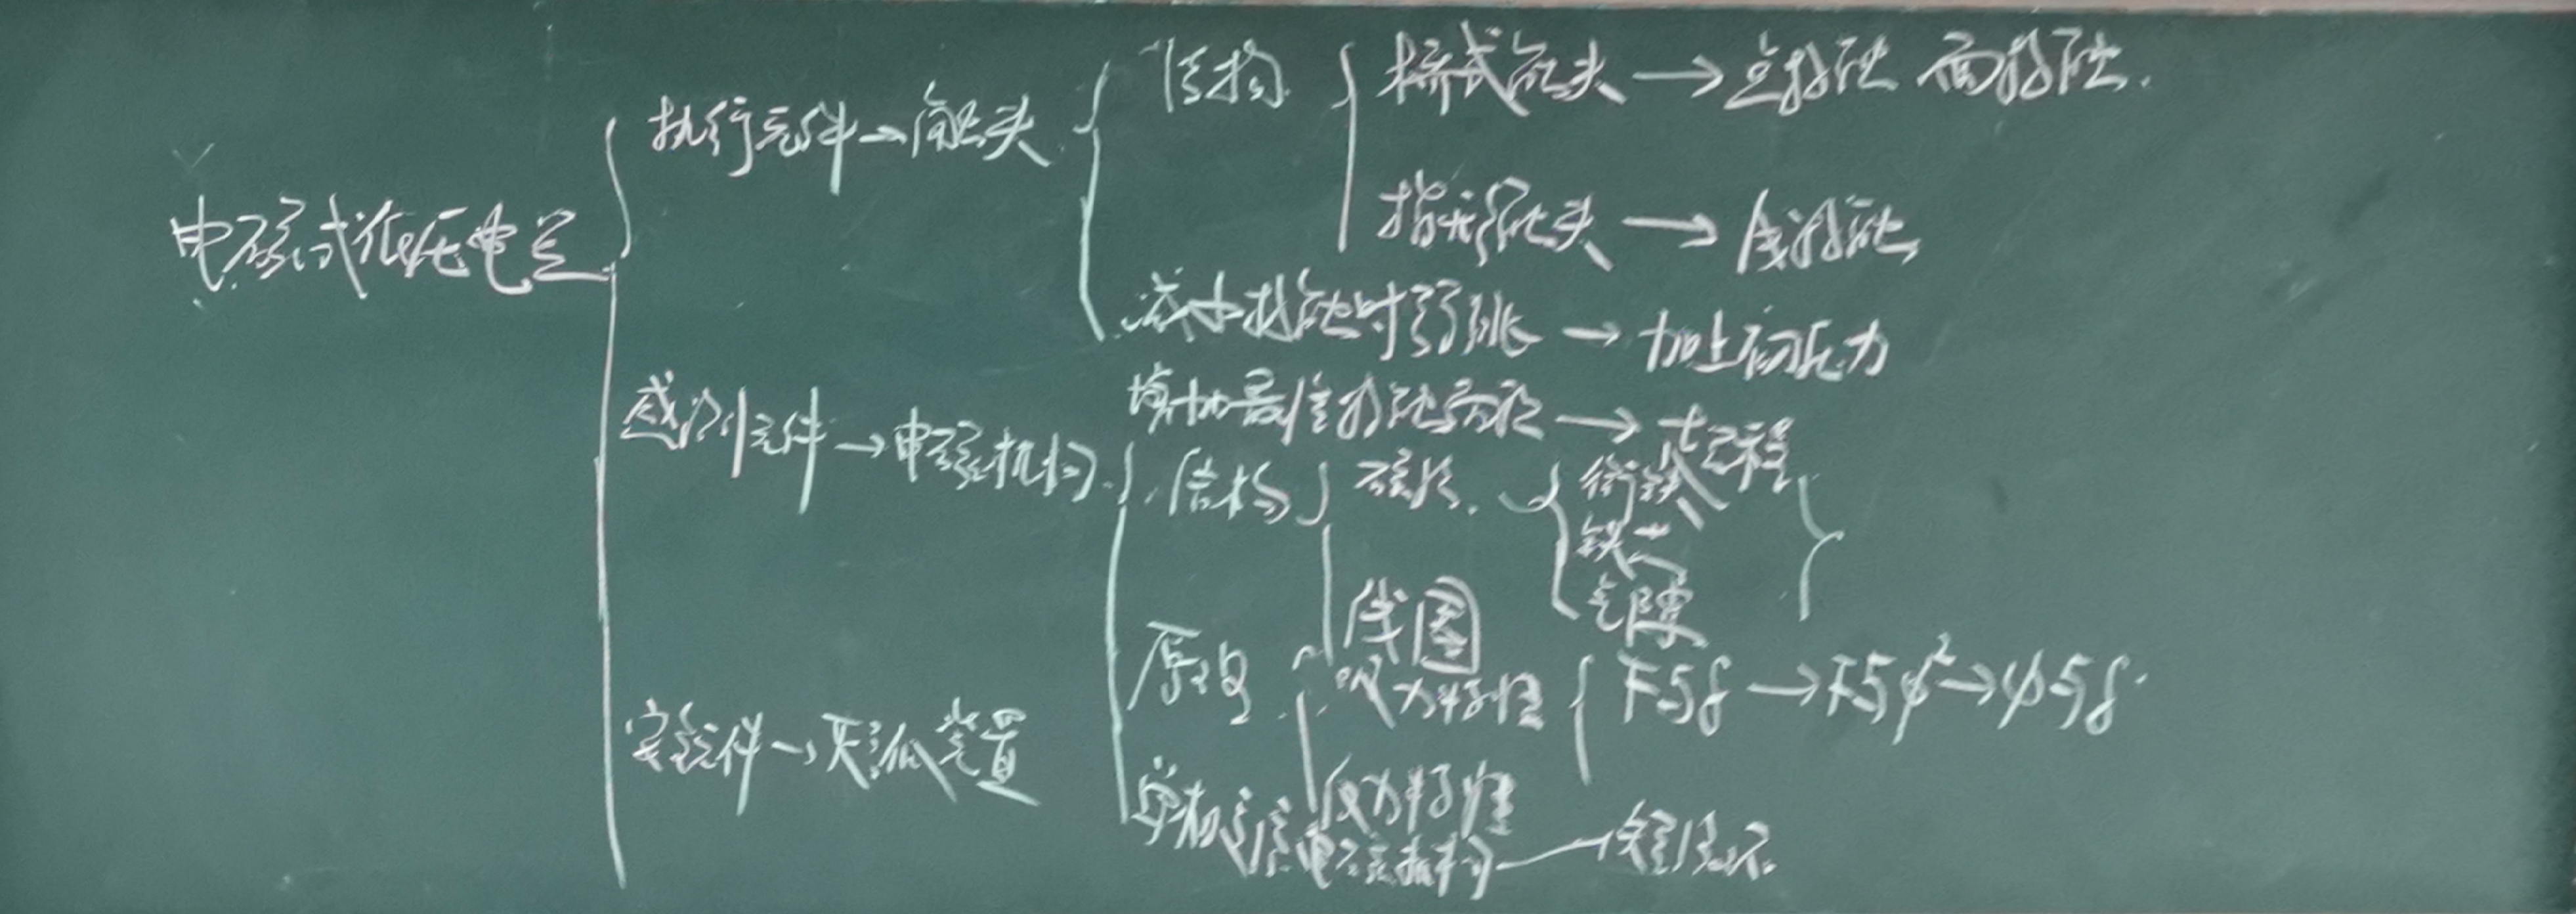 电磁式低压电器
执行元件→触头
结构
桥式触头→点接触 面接触.
指形触头→线接触
减小接触时弹跳→加上初压力
增加最终接触面积→超程
感测元件→电磁机构
结构
磁路
衔铁
铁芯
气隙
线圈
原理
吸力特性
F与δ→F与φ²→φ与δ
反力特性
单相交流电磁机构→短路环
灭弧装置